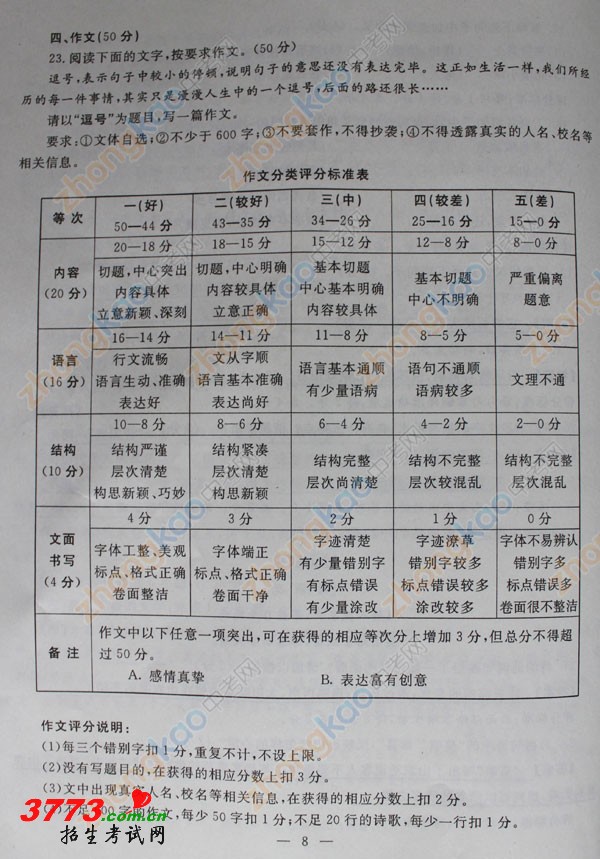 四、作文(50分)
23.阅读下面的文字,按要求作文。(50分)
逗号,表示句子中较小的停顿,说明句子的意思还没有表达完毕。这正如生活一样,我们所经
历的每一件事情,其实只是漫漫人生中的一个逗号,后面的路还很长……
请以“逗号”为题目,写一篇作文。
要求:①文体自选;②不少于600字;③不要套作,不得抄袭;④不得透露真实的人名、校名等
相关信息。
作文分类评分标准表
等次 一(好) 二(较好) 三(中) 四(较差) 五(差)
50—44分 43—35分 34—26分 25—16分 15—0分
内容
(20分)
20—18分 18—15分 15—12分 12—8分 8—0分
切题,中心突出
内容具体
立意新颖、深刻
切题,中心明确
内容较具体
立意正确
基本切题
中心基本明确
内容较具体
基本切题
中心不明确
严重偏离
题意
语言
(16分)
16—14分 14—11分 11—8分 8—5分 5—0分
行文流畅
语言生动、准确
表达好
文从字顺
语言基本准确
表达尚好
语言基本通顺
有少量语病
语句不通顺
语病较多
文理不通
结构
(10分)
10—8分 8—6分 6—4分 4—2分 2—0分
结构严谨
层次清楚
构思新颖、巧妙
结构紧凑
层次清楚
构思新颖
结构完整
层次尚清楚
结构不完整
层次较混乱
结构不完整
层次混乱
文面
书写
(4分)
4分 3分 2分 1分 0分
字体工整、美观
标点、格式正确
卷面整洁
字体端正
标点、格式正确
卷面干净
字迹清楚
有少量错别字
有标点错误
有少量涂改
字迹潦草
错别字较多
标点错误较多
涂改较多
字体不易辨认
错别字多
标点错误多
卷面很不整洁
备注
作文中以下任意一项突出,可在获得的相应等次分上增加3分,但总分不得超
过50分。
A. 感情真挚 B. 表达富有创意
作文评分说明:
(1)每三个错别字扣1分,重复不计,不设上限。
(2)没有写题目的,在获得的相应分数上扣3分。
(3)文中出现真实人名、校名等相关信息,在获得的相应分数上扣2分。
不足 00字的作文,每少50字扣1分;不足20行的诗歌,每少一行扣1分。
— 8 —
3773.com.cn
招生考试网
zhongkao中考网